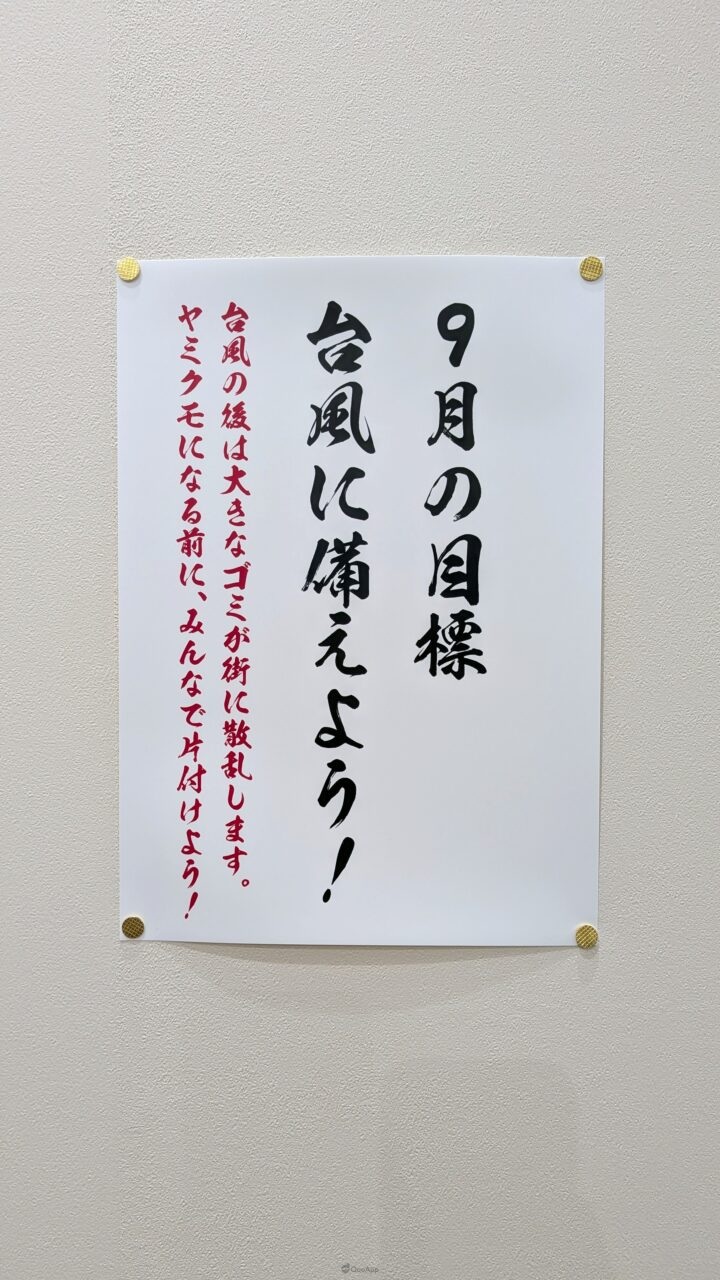 9月の目標
台風に備えよう!
台風の後は大きなゴミが街に散乱します。
ヤミクモになる前に、みんなで片付けよう!
QooApp